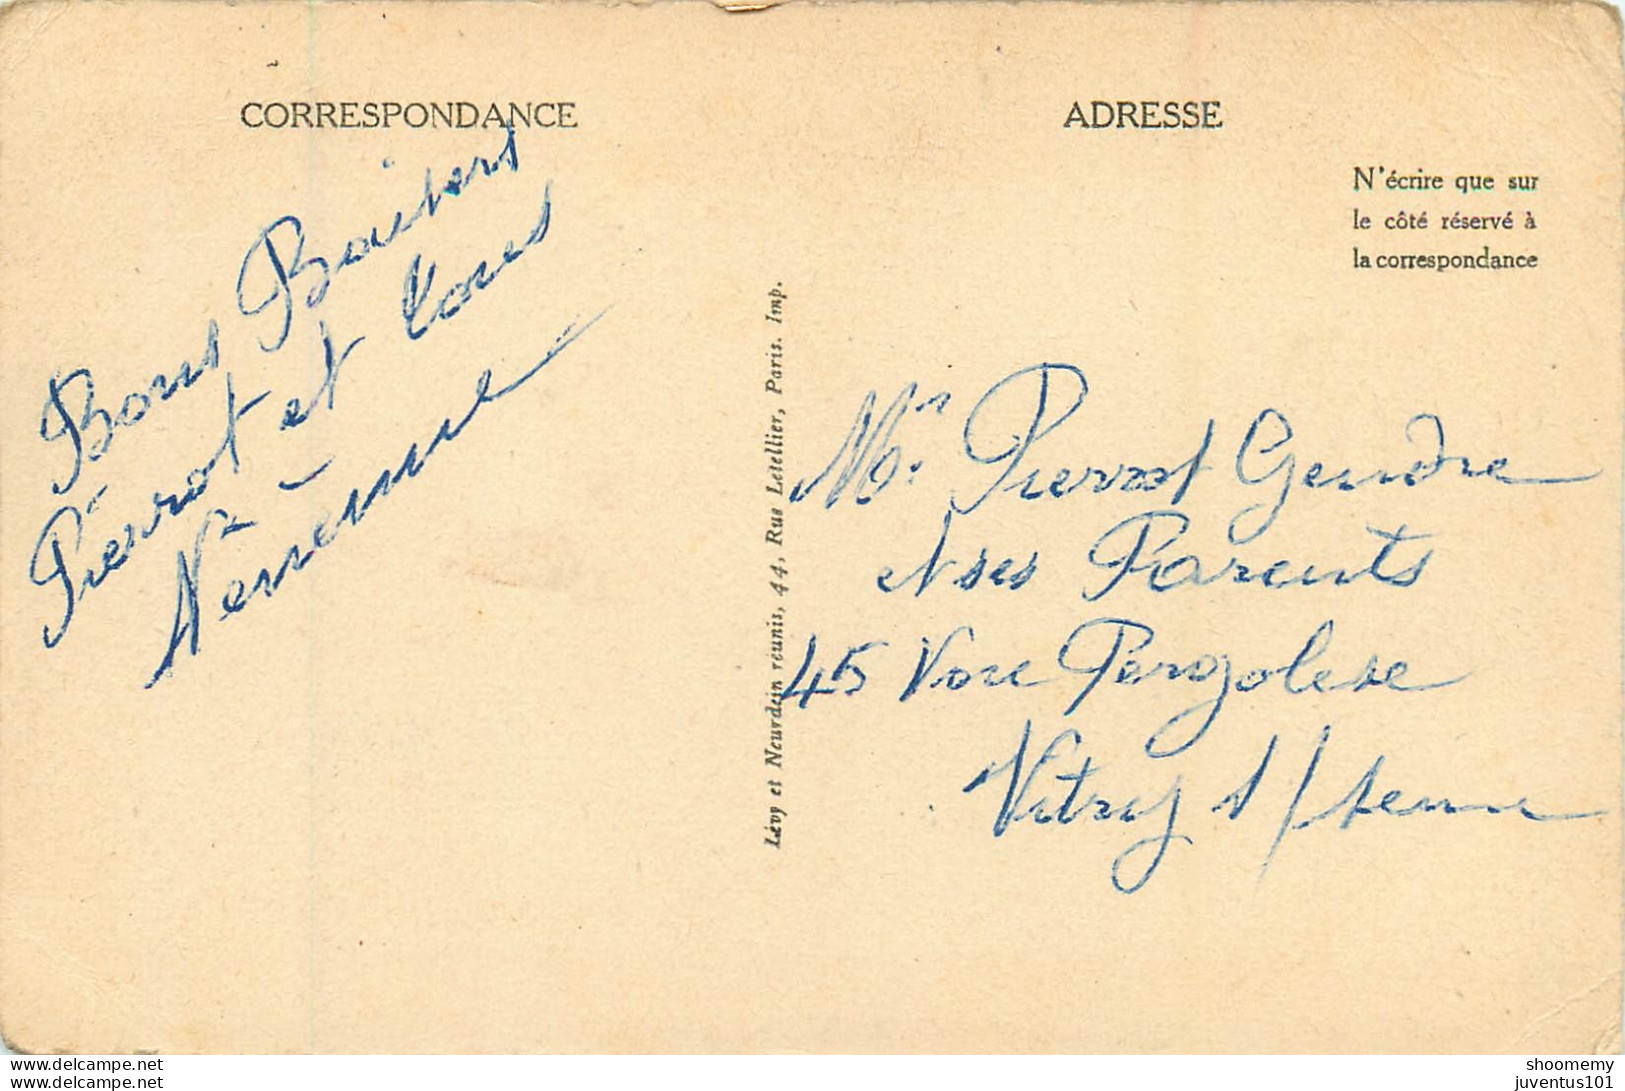 CORRESPONDANCE
Bons Baisers
Pierrot et tous
ADRESSE
N'écrire que sur
le côté réservé à
la correspondance
Lévy et Neurdein réunis, 44, Rue Letellier, Paris. Imp.
Mr Pierrot Gendre
et ses Parents
45 Voie Pergolese
Vitry s/seine
www.delcampe.net
www.delcampe.net
shoomemy
juventus101